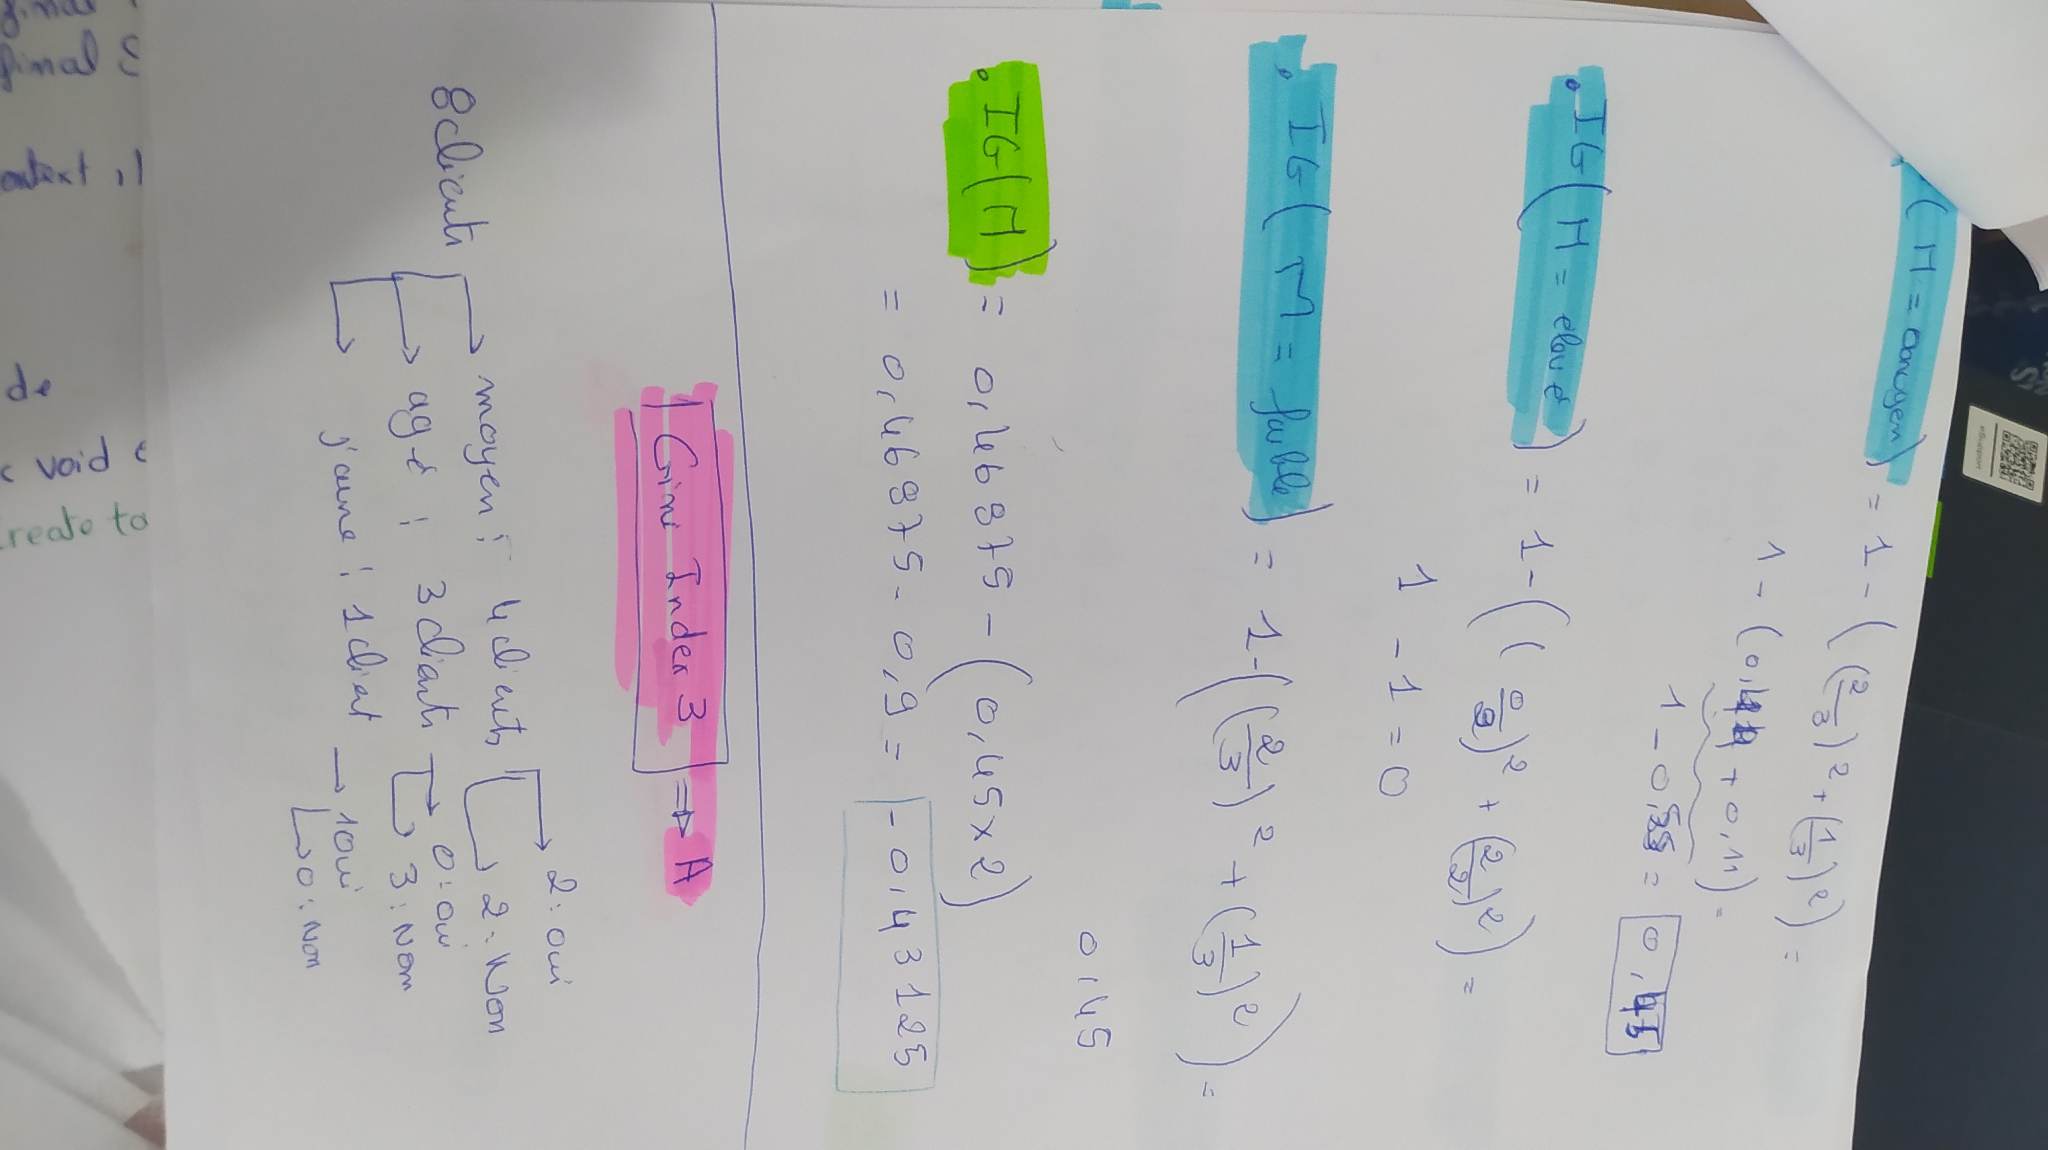 eSupport
(M = moyen) = 1 - ((2/3)² + (1/3)²) =
1 - (0,44 + 0,11) =
1 - 0,55 = 0,45
. IG(M = élevé) = 1 - ((0/2)² + (2/2)²) =
1 - 1 = 0
. IG(M = faible) = 1 - ((2/3)² + (1/3)²) =
0,45
. IG(M) = 0,46875 - (0,45 x 2)
= 0,46875 - 0,9 = - 0,43125
Gini Index 3 => A
8 clients
→ moyen : 4 clients → 2 : oui
→ 2 : Non
→ agé : 3 clients → 0 : oui
→ 3 : Non
→ j'aune : 1 client → 1 oui
→ 0 : Non
final
ontext
de
void
reate to